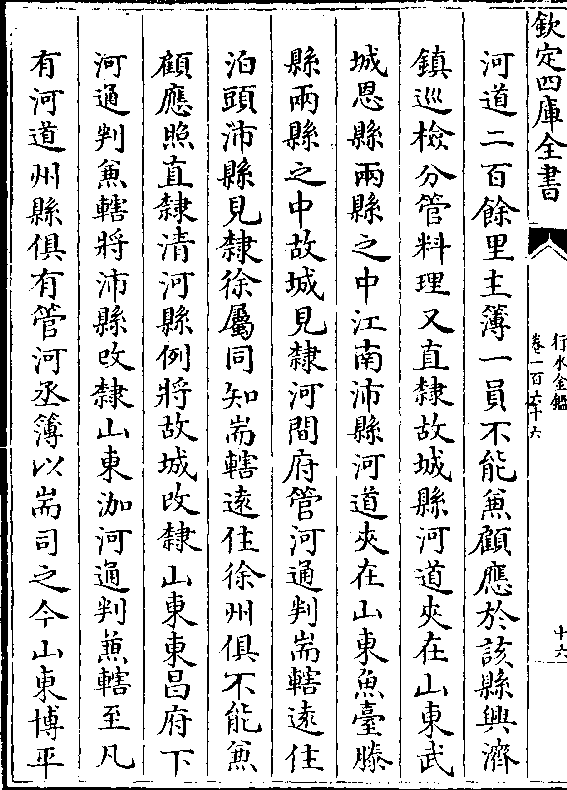 欽定四庫全書
行水金鑑
卷一百六十六
十六
河道二百餘里主簿一員不能兼顧應於該縣興濟
鎮巡檢分管料理又直隸故城縣河道夾在山東武
城恩縣兩縣之中江南沛縣河道夾在山東魚臺滕
縣兩縣之中故城見隸河間府管河通判耑轄遠住
泊頭沛縣見隸徐屬同知耑轄遠住徐州俱不能兼
顧應照直隸清河縣例將故城改隸山東東昌府下
河通判兼轄將沛縣改隸山東泇河通判兼轄至凡
有河道州縣俱有管河丞簿以耑司之今山東博平